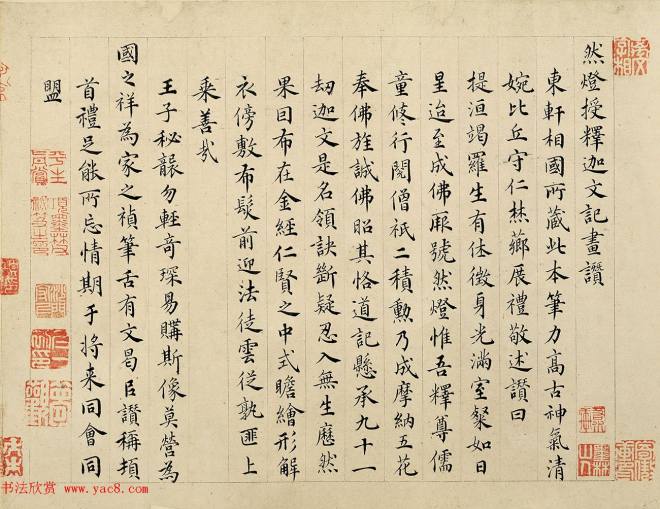 然燈授釋迦文記畫讚
東軒相國所藏此本筆力高古神氣清
婉比丘守仁焚薌展禮敬述讚曰
提洹竭羅生有佳徵身光滿室粲如日
星迨至成佛厥號然燈惟吾釋尊儒
童修行閱僧祇二積勲乃成摩納五花
奉佛旌誠佛昭其恪道記懸承九十一
劫迦文是名領訣斷疑忍入無生歷然
果因布在金經仁賢之中式瞻繪形解
衣傍敷布髮前迎法徒雲從孰匪上
乘善哉
王子秘襲勿輕奇琛易購斯像莫營為
國之祥為家之禎筆舌有文曷臣讚稱頫
首禮足能所忘情期于將来同會同
盟
书法欣赏 www.yac8.com